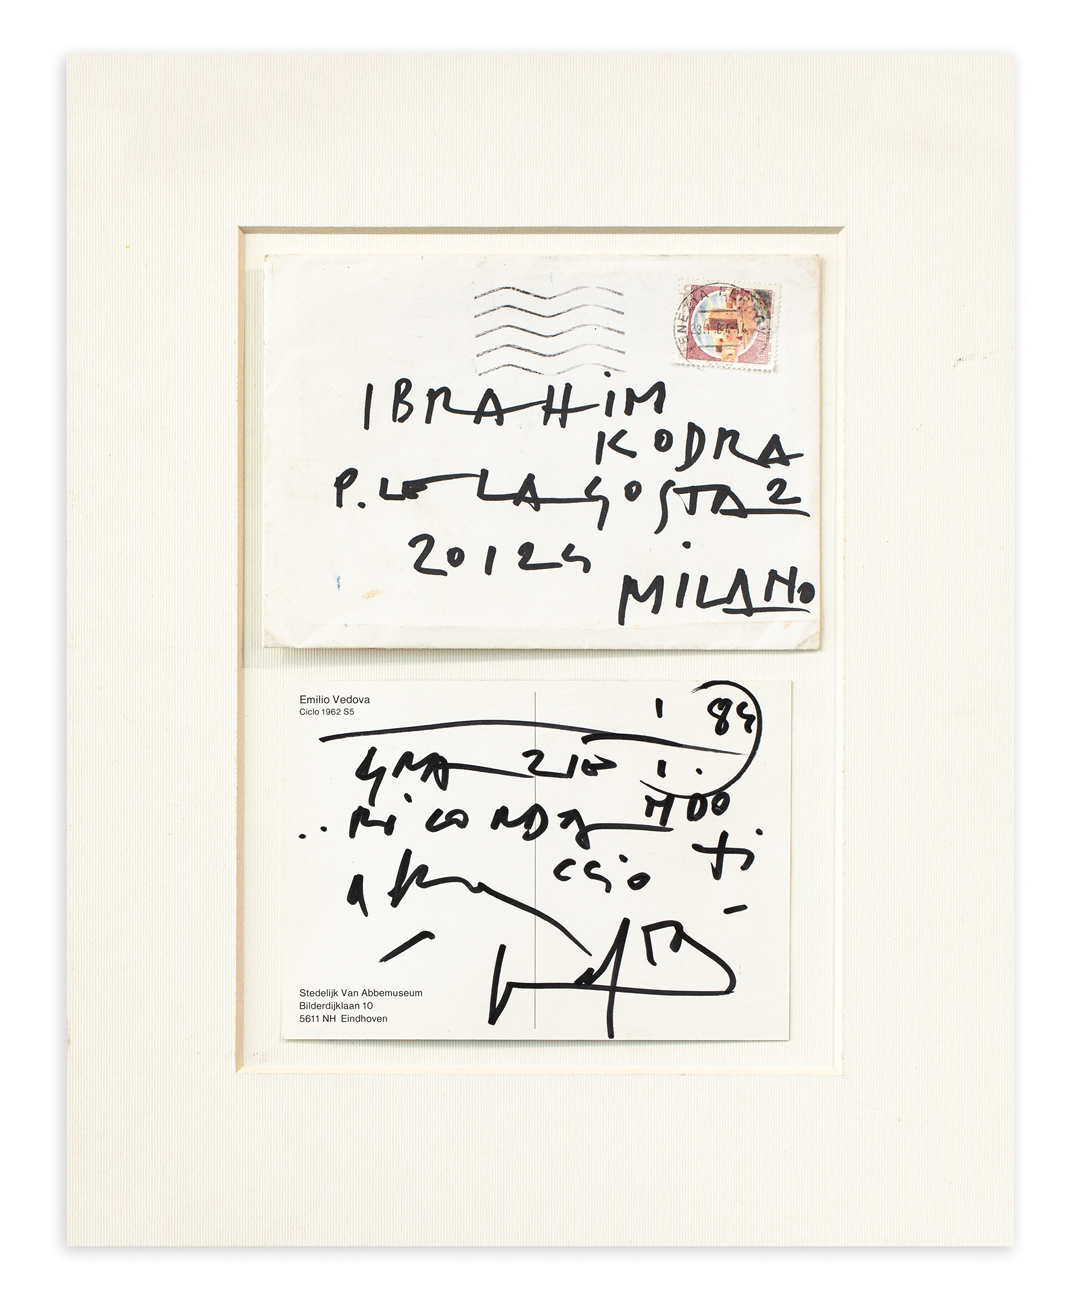 VENEZIA
IBRAHiM
KODRA
P.LE LAGOSTA 2
20124
MiLANO
Emilio Vedova
Ciclo 1962 S5
1 84
GRAZIE
RiCORDANDOti
abraccio
Vedova
Stedelijk Van Abbemuseum
Bilderdijklaan 10
5611 NH Eindhoven